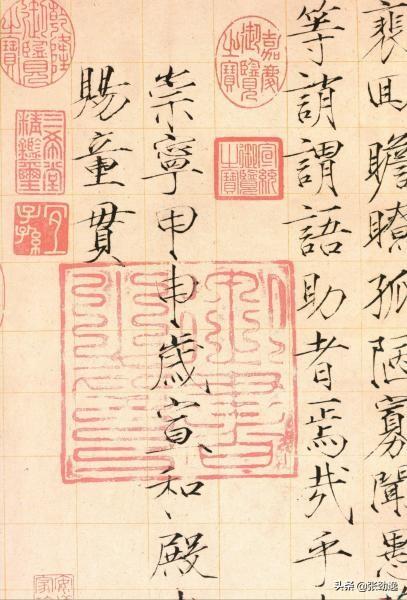 裵回瞻眺孤陋寡聞愚
等誚謂語助者焉哉乎
嘉慶御覽之寶
宣統御覽之寶
崇寧甲申歲宣和殿
賜童貫
乾隆御覽之寶
三希堂精鑑璽
宜子孫
头条 @张劲逸